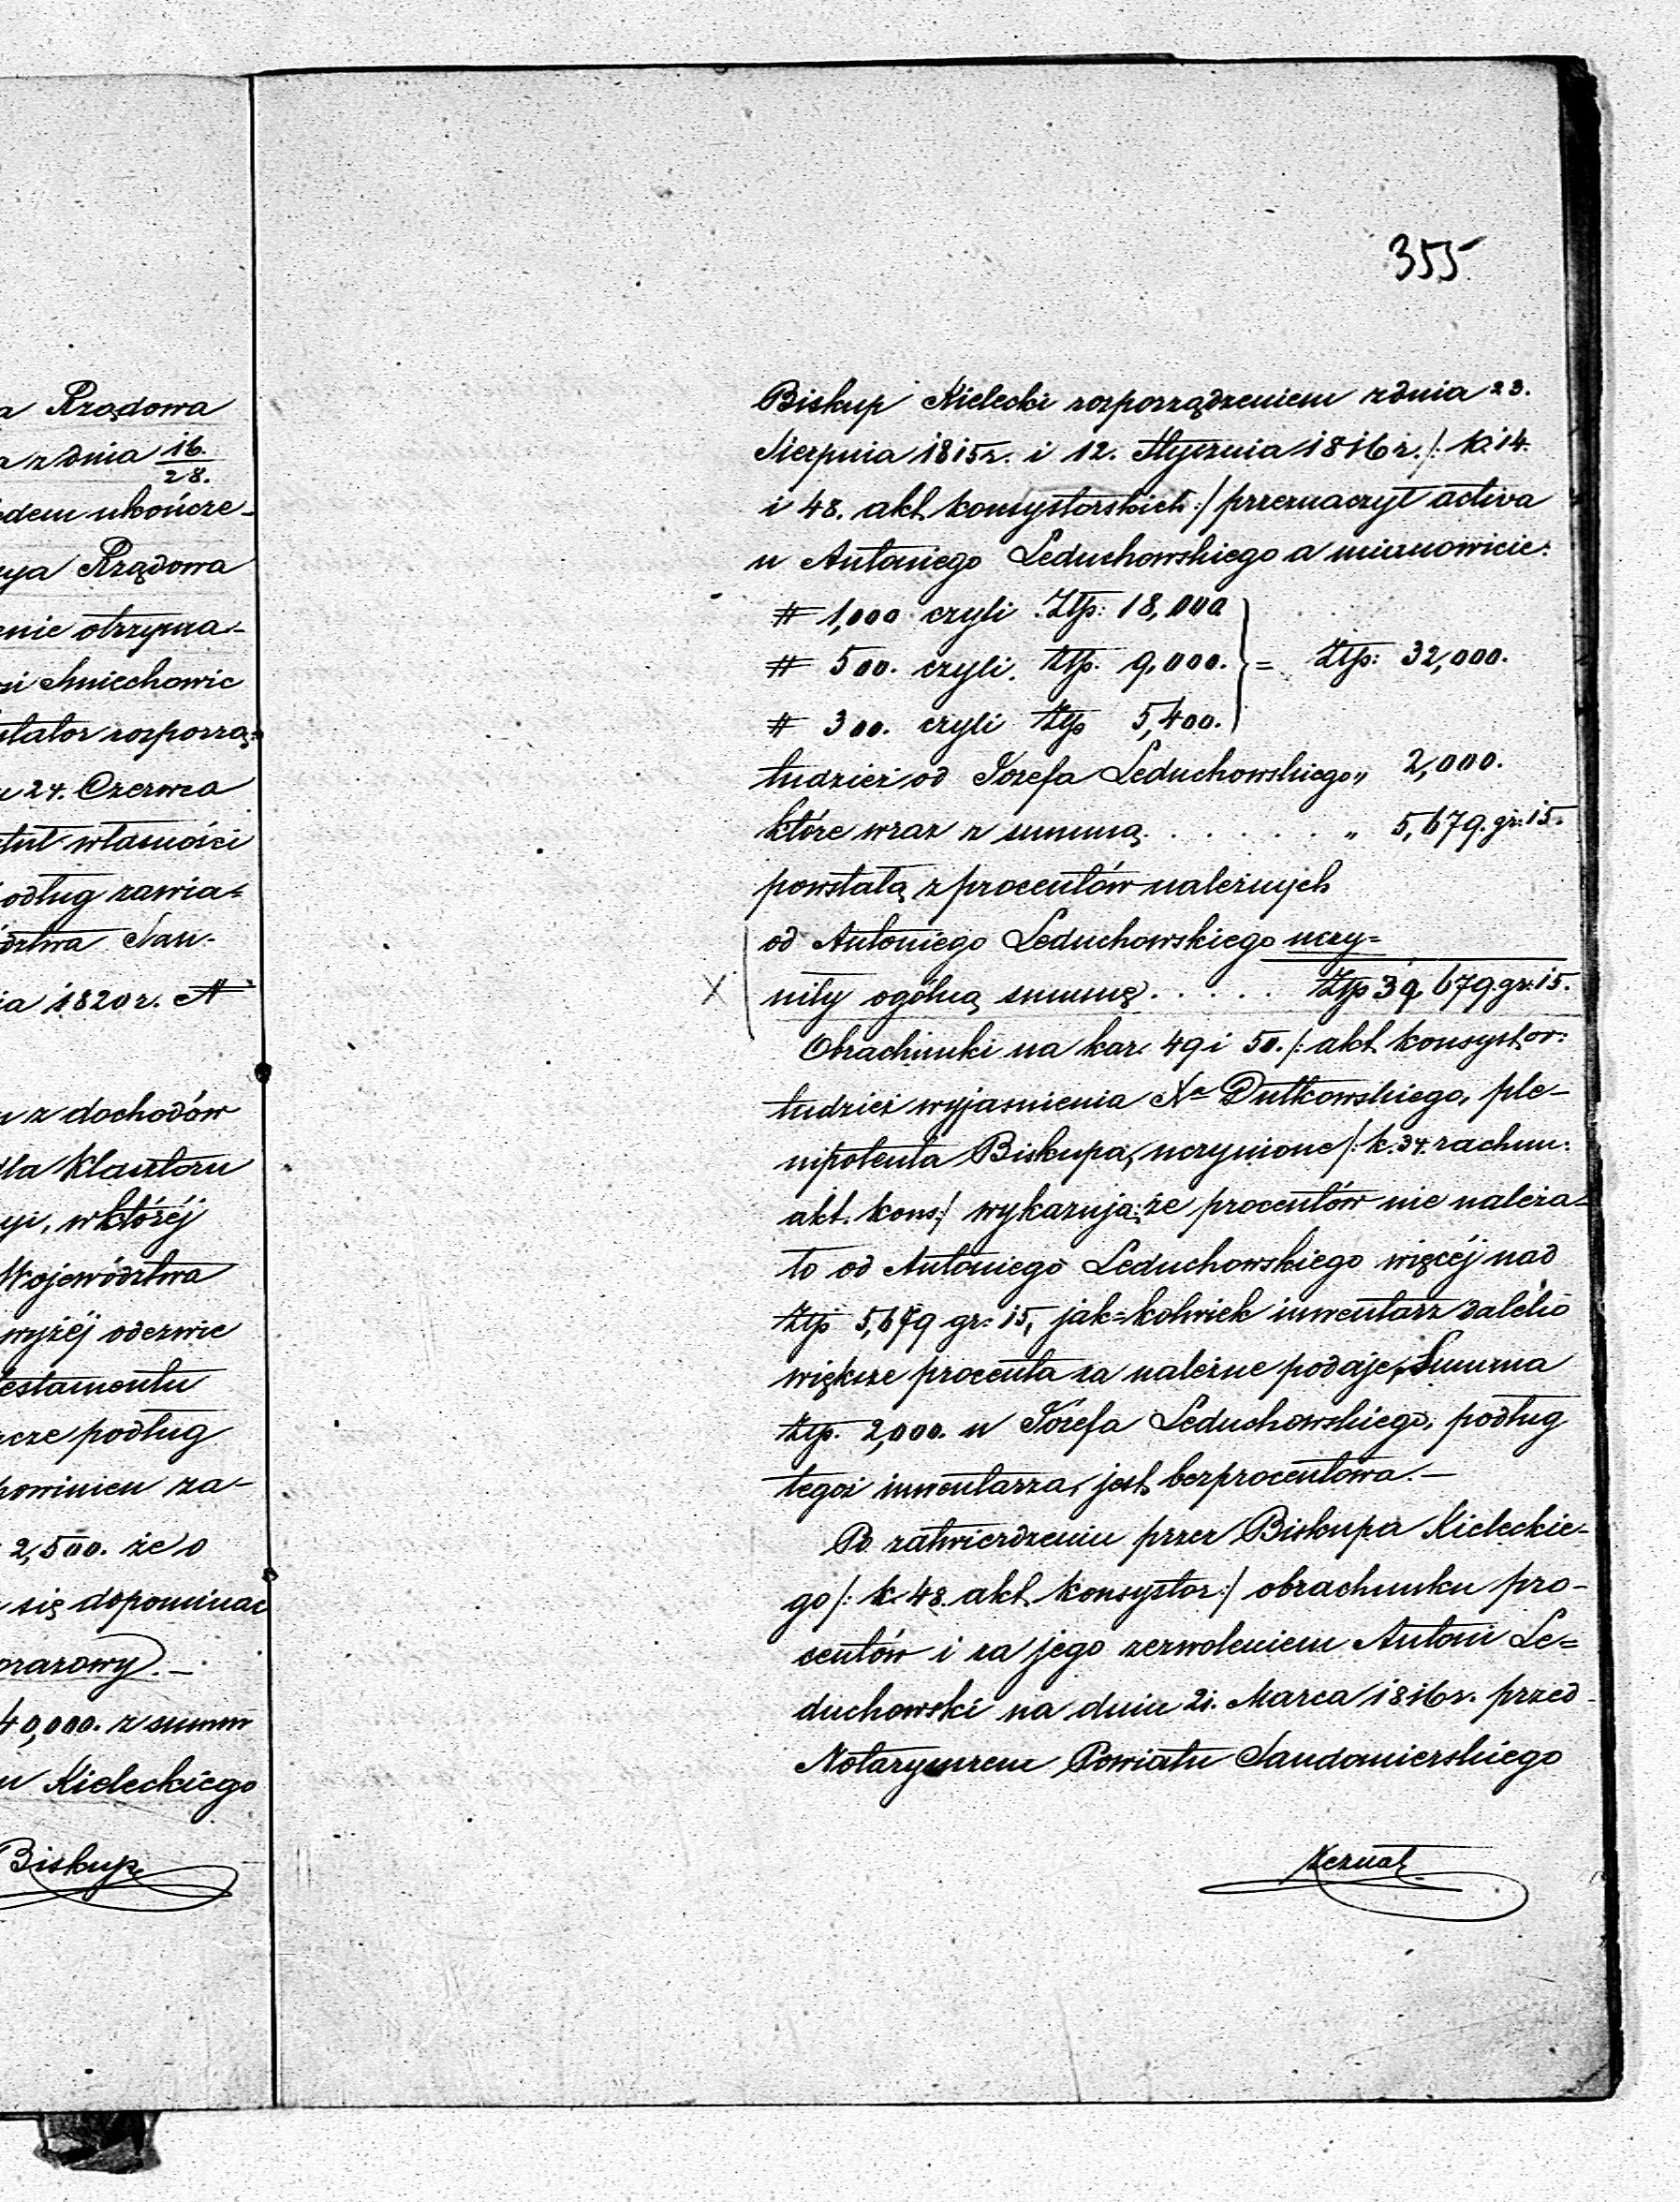 a Rządowa
a z dnia 16./28.
dem ukończe-
ya Rządowa
enie otrzyma-
si Śmiechowic
tator rozporzą=
u 24. Czerwca
tuł własności
odług zawia=
ództwa San-
ia 1820 r. A
u z dochodów
dla Klasztoru
yi, w któréj
Województwa
wyżéj odezwie
testamentu
cze podług
powinien za-
2,500. że o
się dopominać
orazowy). —
40,000. z summ
u Kieleckiego
Biskup
355
Biskup Kielecki rozporządzeniem z dnia 23.
Sierpnia 1815 r. i 12. Stycznia 1816 r. /: k. 14.
i 48. akt. konsystorskich :/ przeznaczył activa
u Antoniego Leduchowskiego a mianowicie:
# 1,000 czyli Złp: 18,000
# 500. czyli Złp. 9,000. } = Złp: 32,000.
# 300. czyli Złp 5,400.
tudzież od Józefa Leduchowskiego „ 2,000.
które wraz z summą . . . . . . „ 5,679. gr: 15.
powstałą z procentów należnych
od Antoniego Leduchowskiego uczy=
X niły ogólną summę . . . . . Złp 39,679. gr: 15.
Obrachunki na kar. 49 i 50. /: akt. konsystor:
tudzież wyjaśnienia Xa Dutkowskiego, ple-
nipotenta Biskupa, uczynione /: k. 34. rachun:
akt. kons :/ wykazują: że procentów nie należa-
ło od Antoniego Leduchowskiego więcéj nad
Złp 5,679 gr: 15, jak=kolwiek inwentarz daléko
większe procenta za należne podaje, Summa
Złp. 2,000. u Józefa Leduchowskiego, podług
tegoż inwentarza, jest bezprocentowa. —
Po zatwierdzeniu przez Biskupa Kieleckie-
go /: k. 48. akt. konsystor :/ obrachunku pro-
centów i za jego zezwoleniem Antoni Le=
duchowski na dniu 21. Marca 1816 r. przed
Notaryuszem Powiatu Sandomierskiego
zeznał